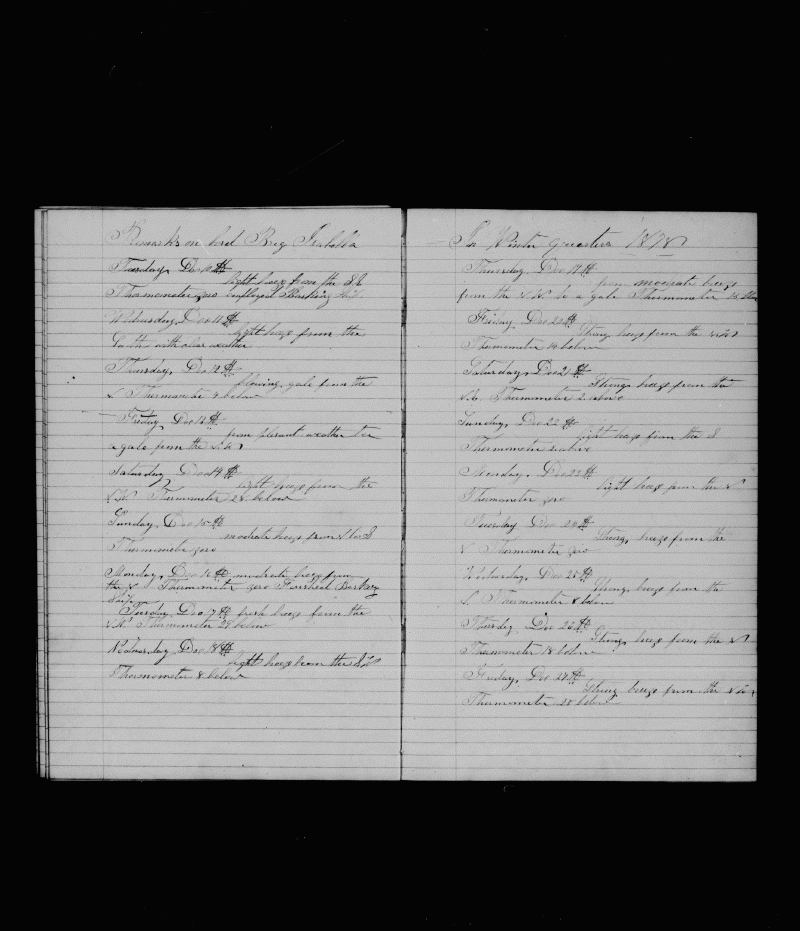 Remarks on bord Brig Isabella
Tuesday, Dec 10th
light breeze from the S E
Thermometer zero employed Banking
Wednesday, Dec 11th
light breeze from the
South with clear weather
Thursday, Dec 12th
blowing gale from the
Thermometer 4 below
Friday, Dec 13th
from plesant weather to
a gale from the
Saturday Dec 14th
light breeze from the
N.W. Thermometer 28 below
Sunday, Dec 15th
moderate breeze from
Thermometer zero
Monday, Dec 16th moderate breeze from
the N Thermometer zero Finished Banking
Ship
Tuesday, Dec 17th fresh breeze from the
N.W. Thermometer 28 below
Wednesday Dec 18th
light breeze from the
Thermometer 8 below
In Winter Quarters 1878
Thursday, Dec 19th
from moderate breeze
from the N.W. to a gale Thermometer
Friday, Dec 20th
Strong breeze from the
Thermometer 14 below
Saturday, Dec 21th
Strong breeze from the
Thermometer 2 above
Sunday, Dec 22th
light breeze from the S
Thermometer above
Dec 23th
light breeze from the N
Thermometer zero
Tuesday Dec 24th
Strong breeze from the
N Thermometer zero
Wednesday, Dec 25th
Strong breeze from the
Thermometer 8 below
Thursday Dec 26th
Strong breeze from the N
Thermometer 18 below
Friday, Dec 27th
Strong breeze from the
Thermometer 28 below